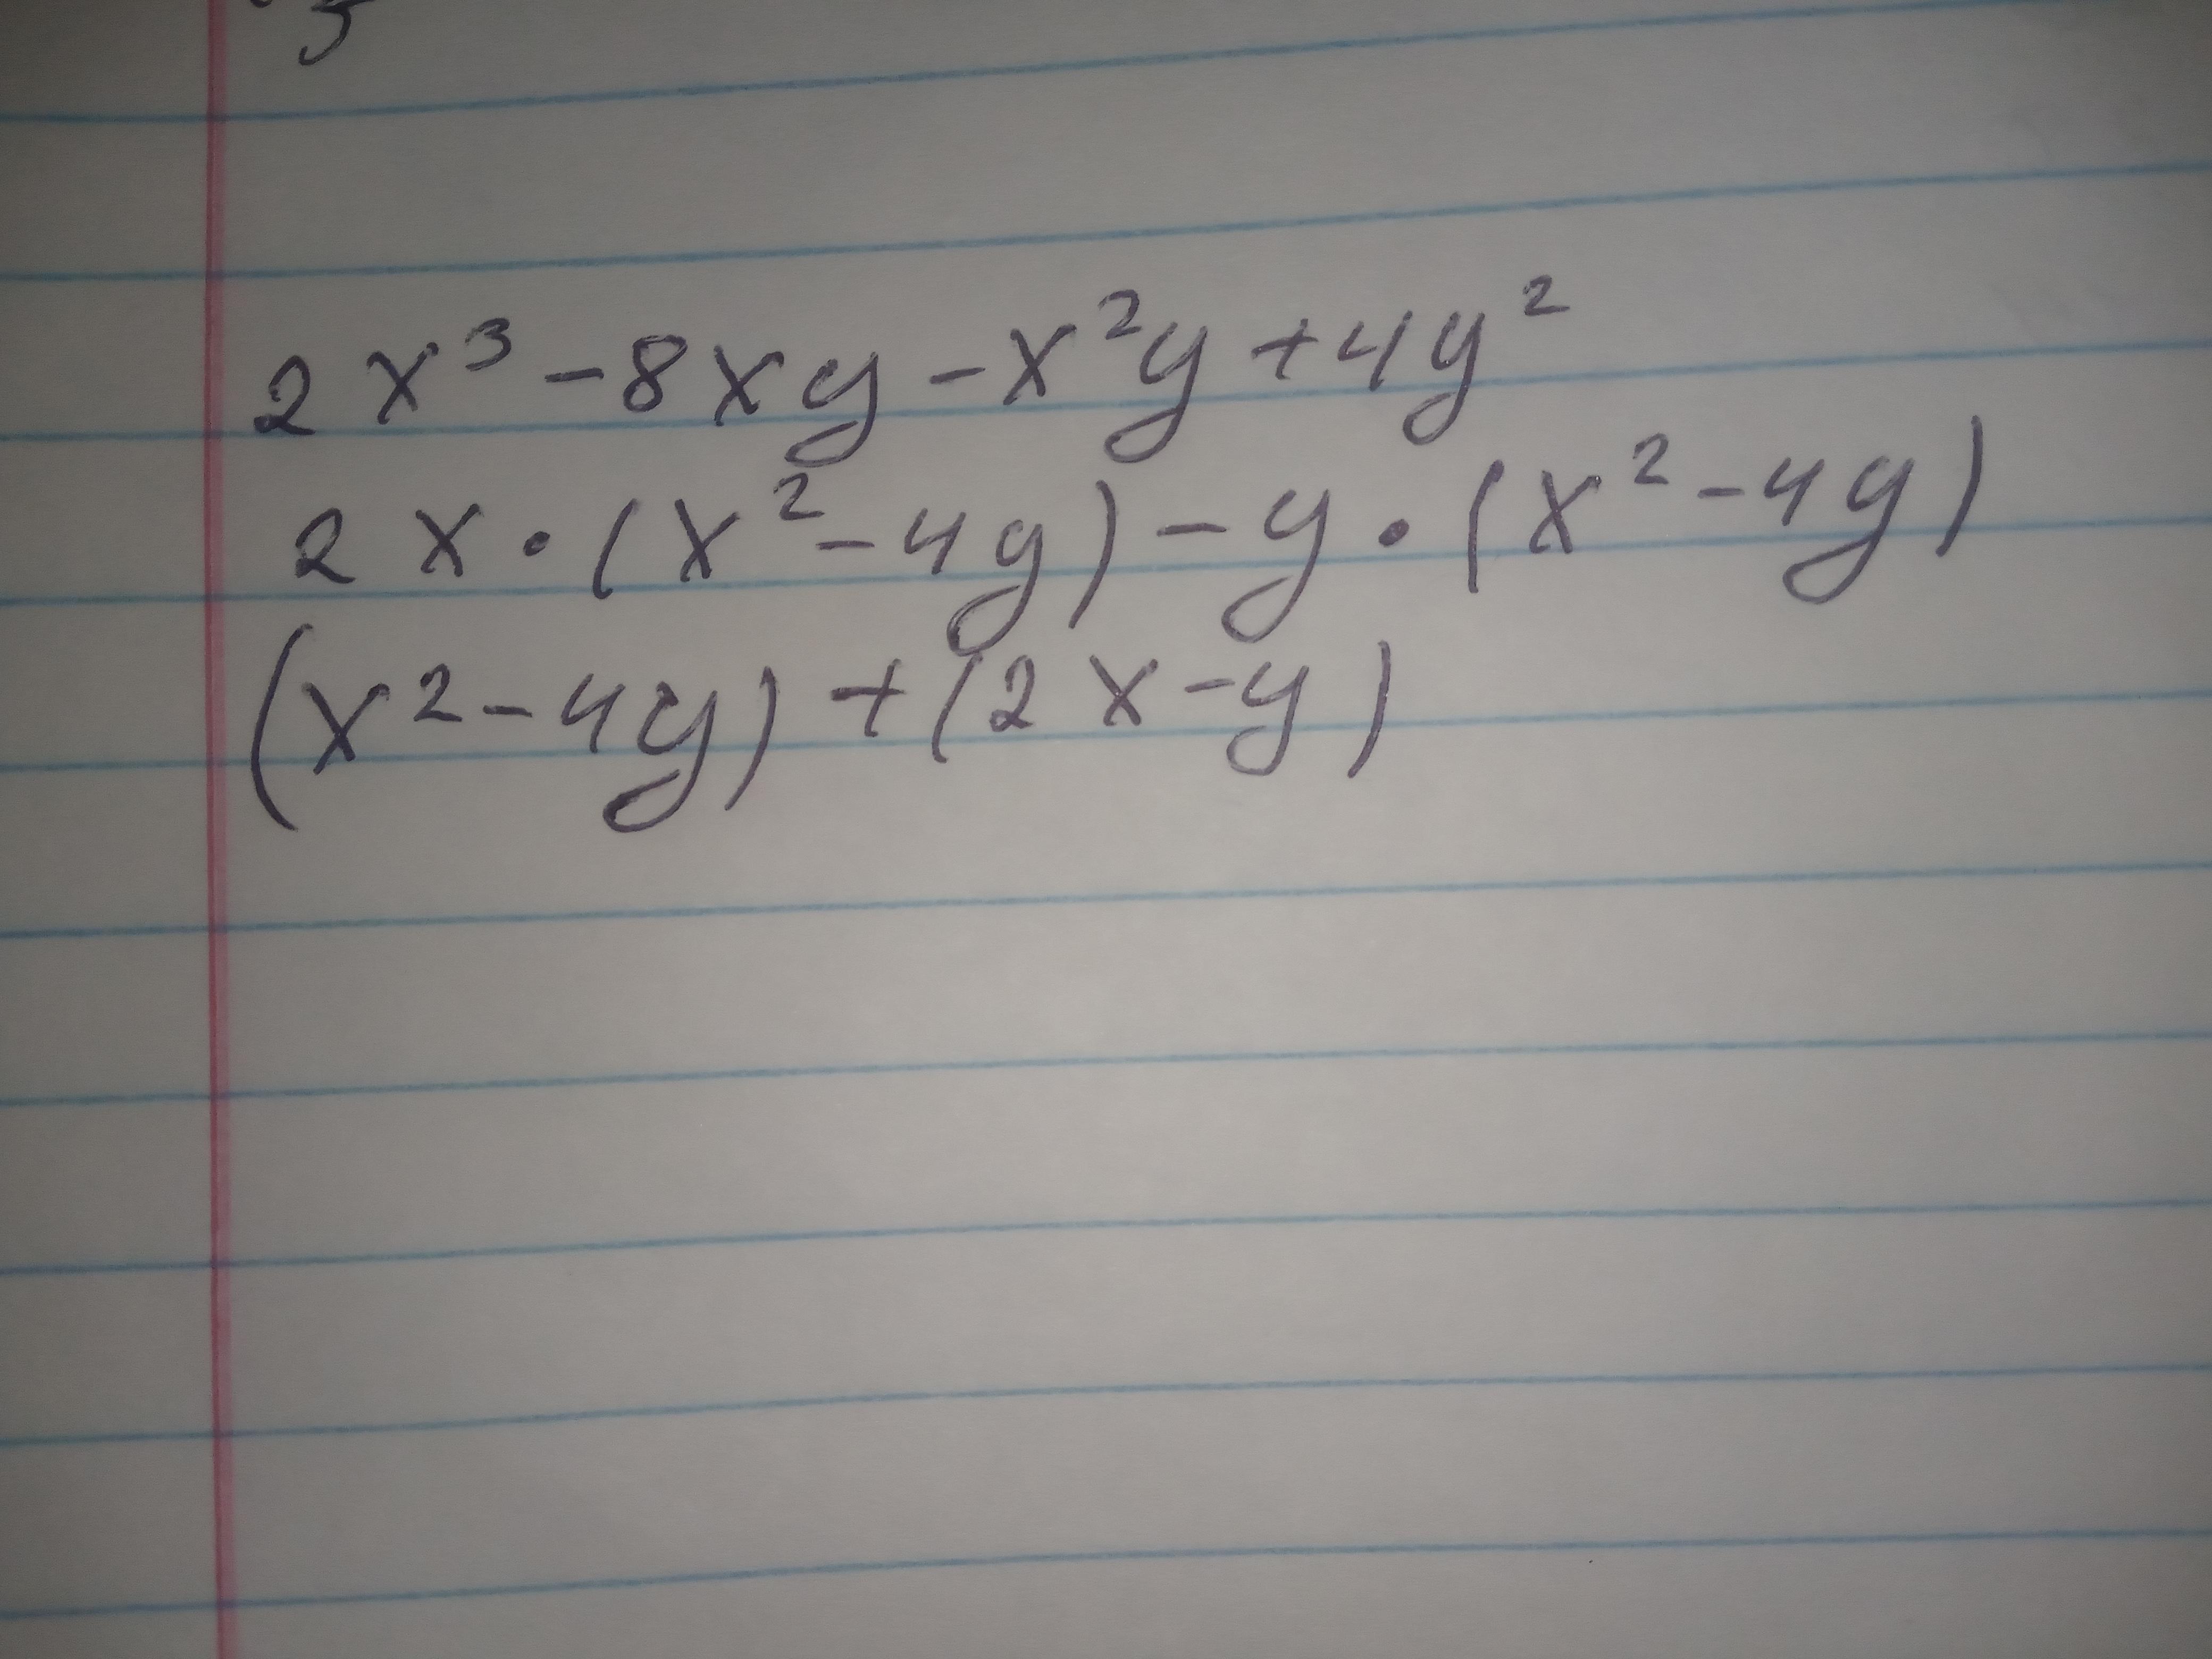 5
2x³ - 8xy - x²y + 4y²
2x · (x² - 4y) - y · (x² - 4y)
(x² - 4y) + (2x - y)